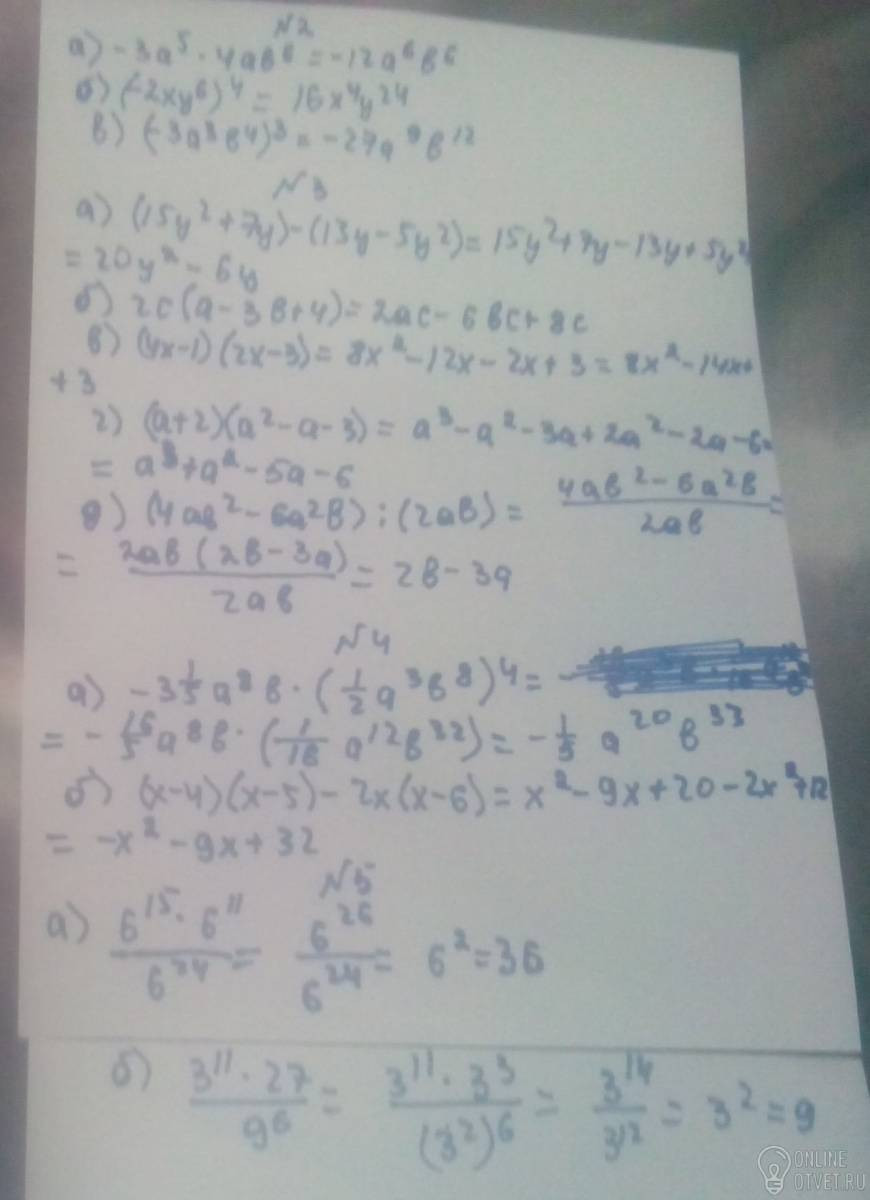 №2
а) -3a⁵ · 4ab⁶ = -12a⁶b⁶
б) (-2xy⁶)⁴ = 16x⁴y²⁴
в) (-3a³b⁴)³ = -27a⁹b¹²
№3
а) (15y²+7y)-(13y-5y²)=15y²+7y-13y+5y²
= 20y² - 6y
б) 2c(a-3b+4)=2ac-6bc+8c
в) (4x-1)(2x-3)=8x²-12x-2x+3=8x²-14x+
+3
г) (a+2)(a²-a-3)=a³-a²-3a+2a²-2a-6=
= a³+a²-5a-6
д) (4ab²-6a²b):(2ab)= (4ab²-6a²b)/(2ab) =
= 2ab(2b-3a)/(2ab) = 2b-3a
№4
а) -3 1/5 a⁸b · (1/2 a³b⁸)⁴ = -
= - 16/5 a⁸b · (1/16 a¹²b³²) = - 1/5 a²⁰b³³
б) (x-4)(x-5)-2x(x-6)=x²-9x+20-2x²+12
= -x²-9x+32
№5
а) (6¹⁵ · 6¹¹)/6²⁴ = 6²⁶/6²⁴ = 6² = 36
б) (3¹¹ · 27)/9⁶ = (3¹¹ · 3³)/(3²)⁶ = 3¹⁴/3¹² = 3² = 9
ONLINE
OTVET.RU